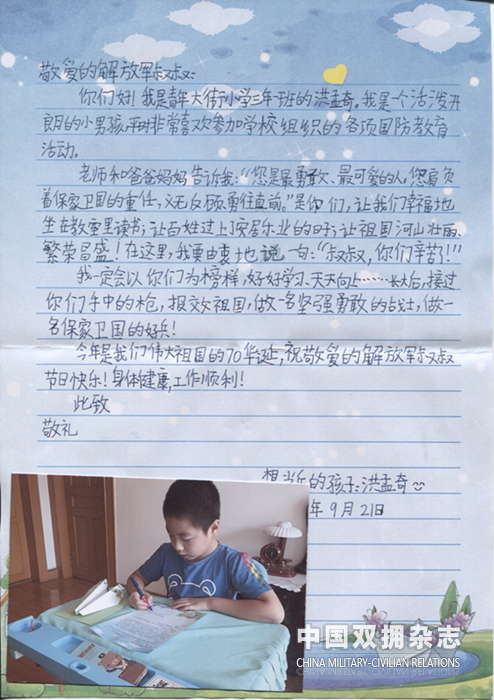 敬爱的解放军叔叔:
你们好!我是青年大街小学三年一班的洪孟奇。我是一个活泼开
朗的小男孩,平时非常喜欢参加学校组织的各项国防教育
活动。
老师和爸爸妈妈告诉我:“您是最勇敢、最可爱的人,您肩负
着保家卫国的重任,义无反顾勇往直前。”是你们,让我们幸福地
坐在教室里读书;让百姓过上了安居乐业的日子;让祖国河山壮丽、
繁荣昌盛!在这里,我要由衷地说一句:“叔叔,你们辛苦了!”
我一定会以你们为榜样,好好学习、天天向上……长大后,接过
你们手中的枪,报效祖国,做一名坚强勇敢的战士,做一
名保家卫国的好兵!
今年是我们伟大祖国的70华诞,祝敬爱的解放军叔叔
节日快乐!身体健康,工作顺利!
此致
敬礼
想当兵的孩子:洪孟奇
年9月21日
中国双拥杂志
CHINA MILITARY-CIVILIAN RELATIONS